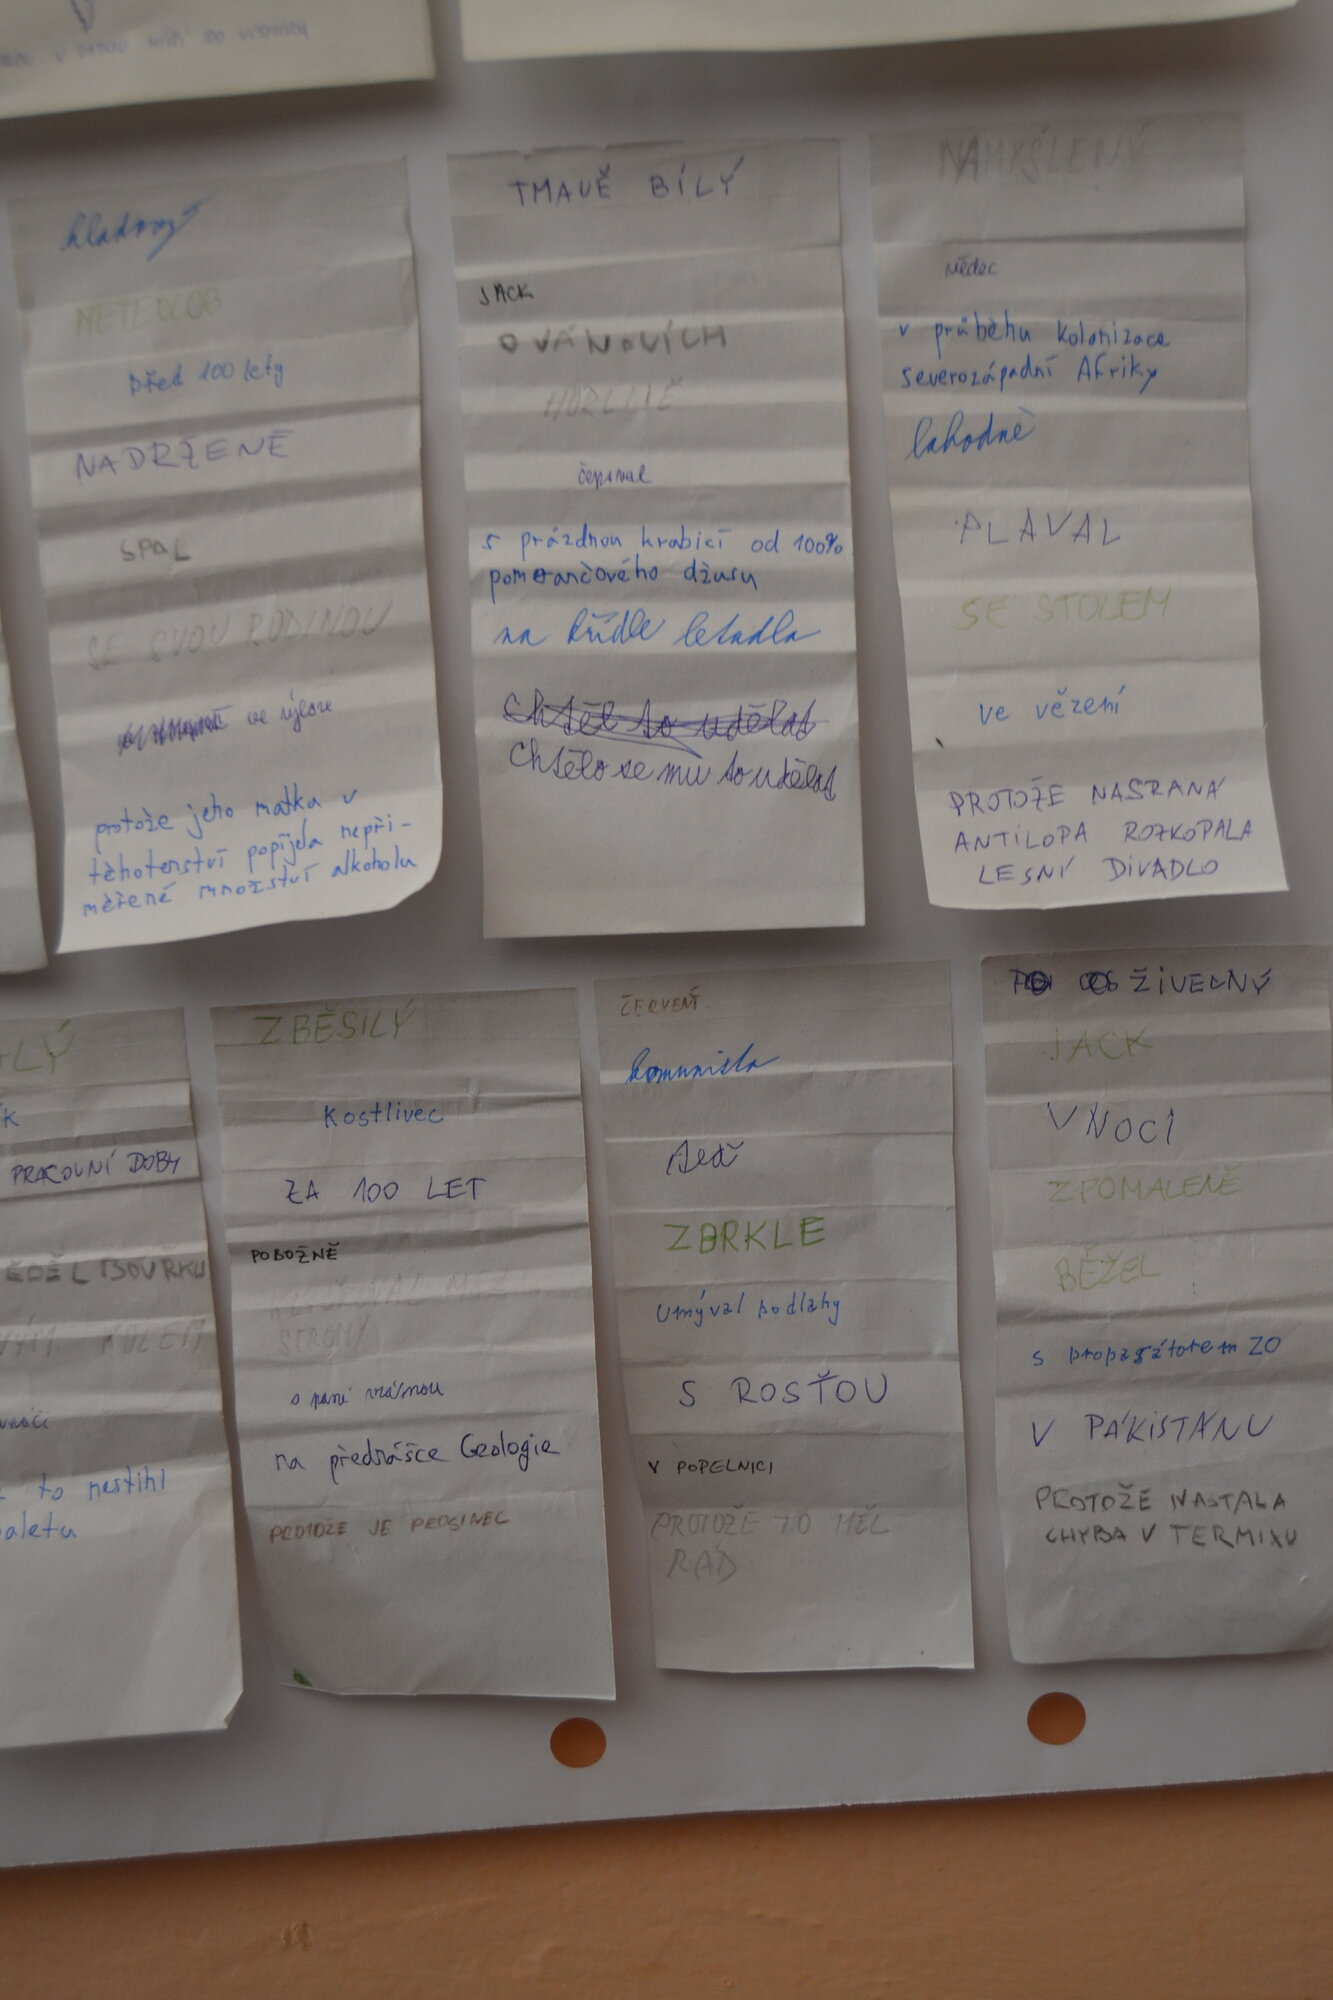 hladový
před 100 lety
NADRŽENĚ
SPAL
SE SVOU RODINOU
ve výlevce
protože jeho matka v
těhotenství popíjela nepři-
měřené množství alkoholu
TMAVĚ BÍLÝ
JACK
O VÁNOVÍCH
čepoval
s prázdnou krabicí od 100%
pomerančového džusu
na křídle letadla
Chtělo se mu to udělat
NAMYŠLENÝ
vědec
v průběhu kolonizace
severozápadní Afriky
lahodně
PLAVAL
SE STOLEM
ve vězení
PROTOŽE NASRANÁ
ANTILOPA ROZKOPALA
LESNÍ DIVADLO
LÝ
K
PRACOVNÍ DOBY
KOLEM
to nestihl
ZBĚSILÝ
Kostlivec
ZA 100 LET
POBOŽNĚ
MEZI
STROMY
s paní vrásnou
na přednášce Geologie
PROTOŽE JE PROSINEC
ČERVENÝ
komunista
teď
ZBRKLE
umýval podlahy
S ROSŤOU
V POPELNICI
PROTOŽE TO MĚL
RÁD
ŽIVELNÝ
JACK
V NOCI
ZPOMALENĚ
BĚŽEL
s propagátorem ZO
V PÁKISTÁNU
PROTOŽE NASTALA
CHYBA V TERMIXU